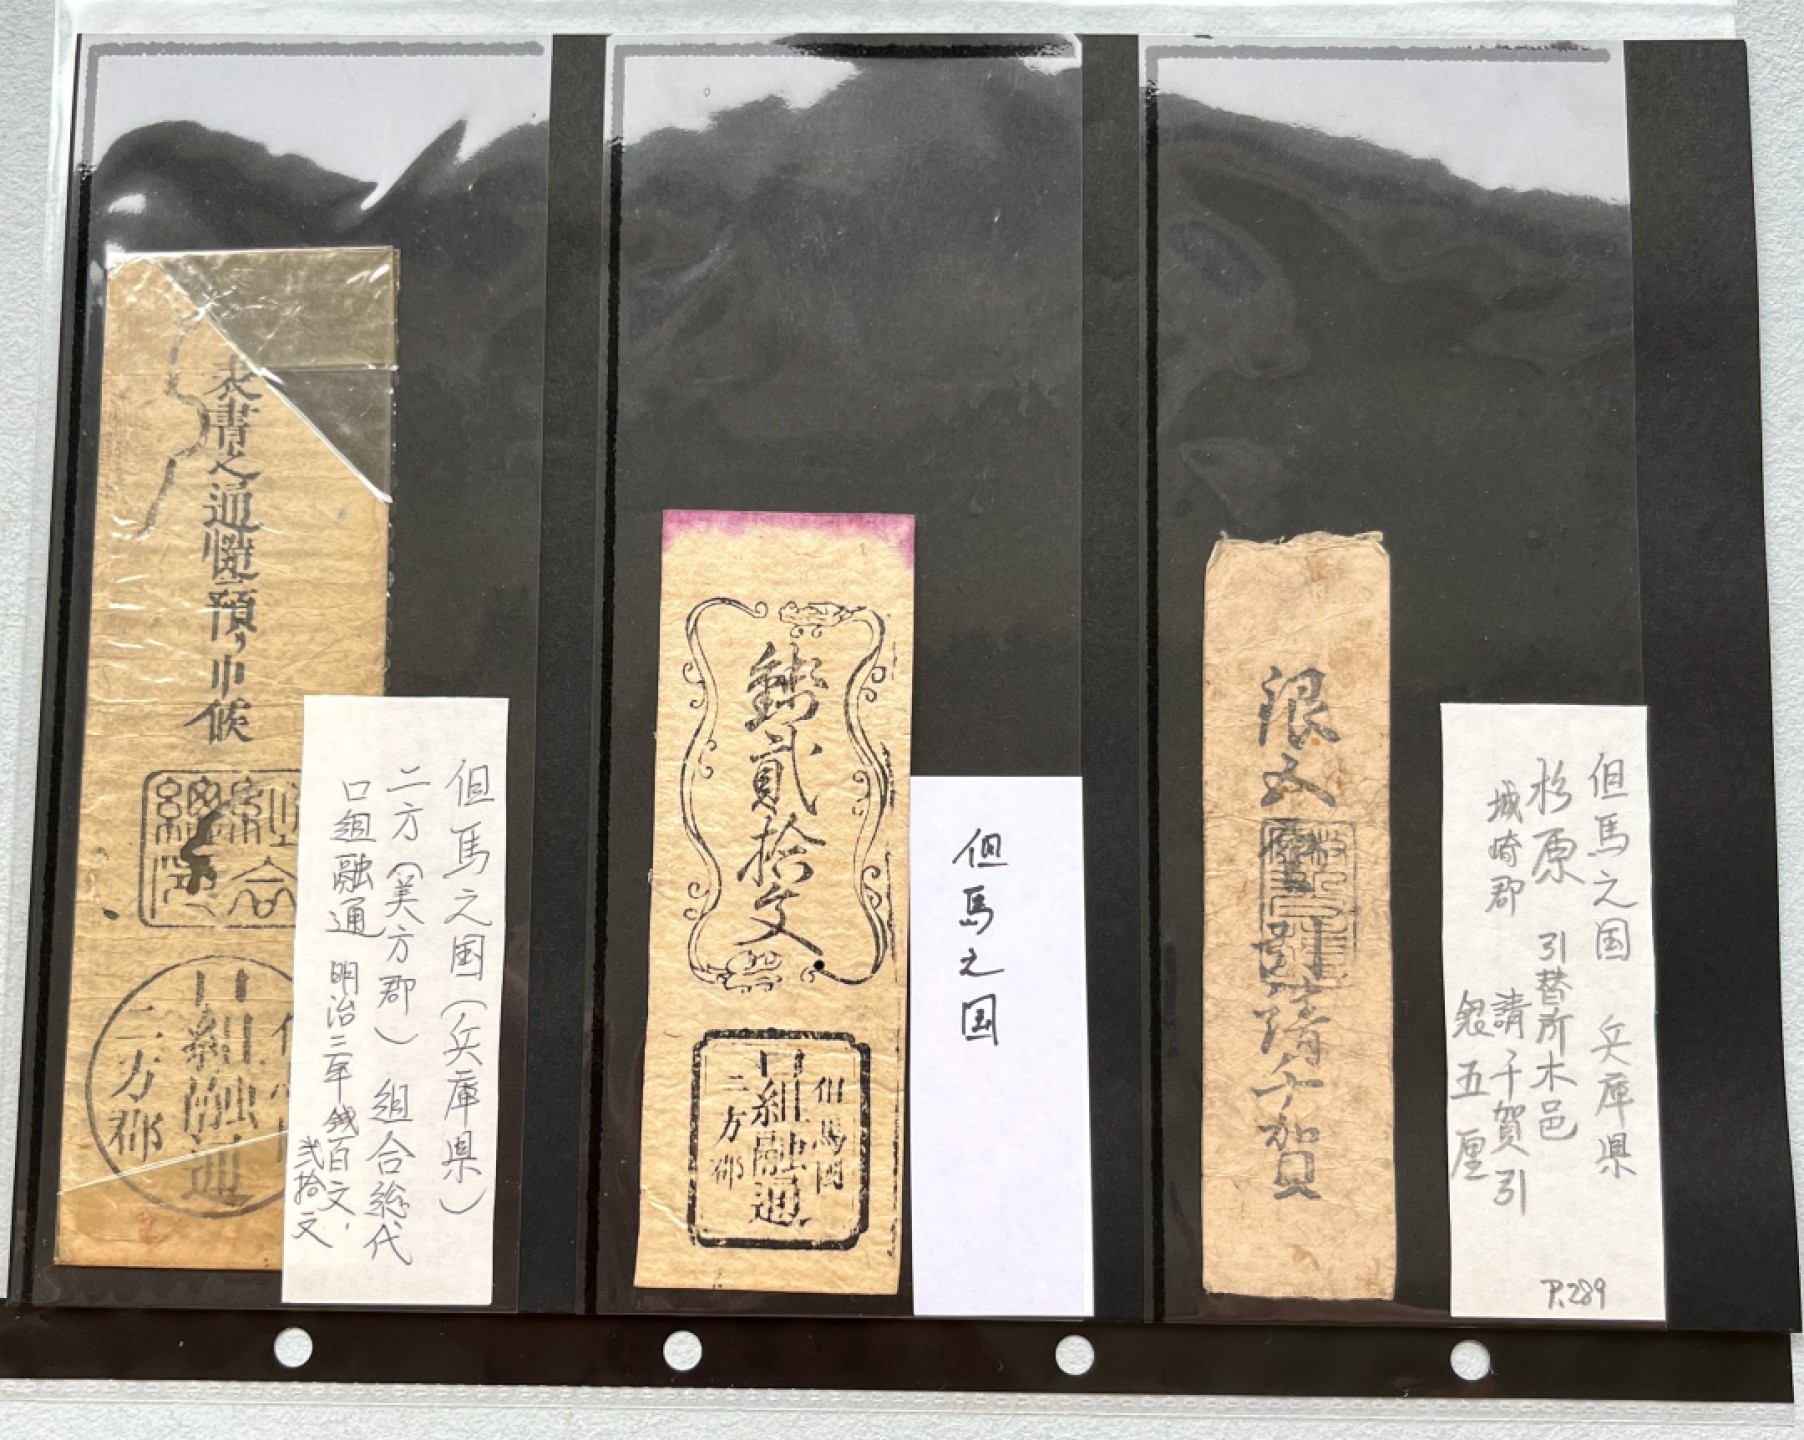 表書之通慥預り申候
組合
総代
口組融通
二方郡
但馬之国(兵庫県)
二方(美方郡) 組合総代
口組融通 明治二年 銭百文、
弐拾文
銭貳拾文
但馬国
口組融通
二方郡
但馬之国
銀五厘
引請千賀
但馬之国 兵庫県
杉原 引替所木邑
城崎郡 請千賀引
銀五厘
P.289